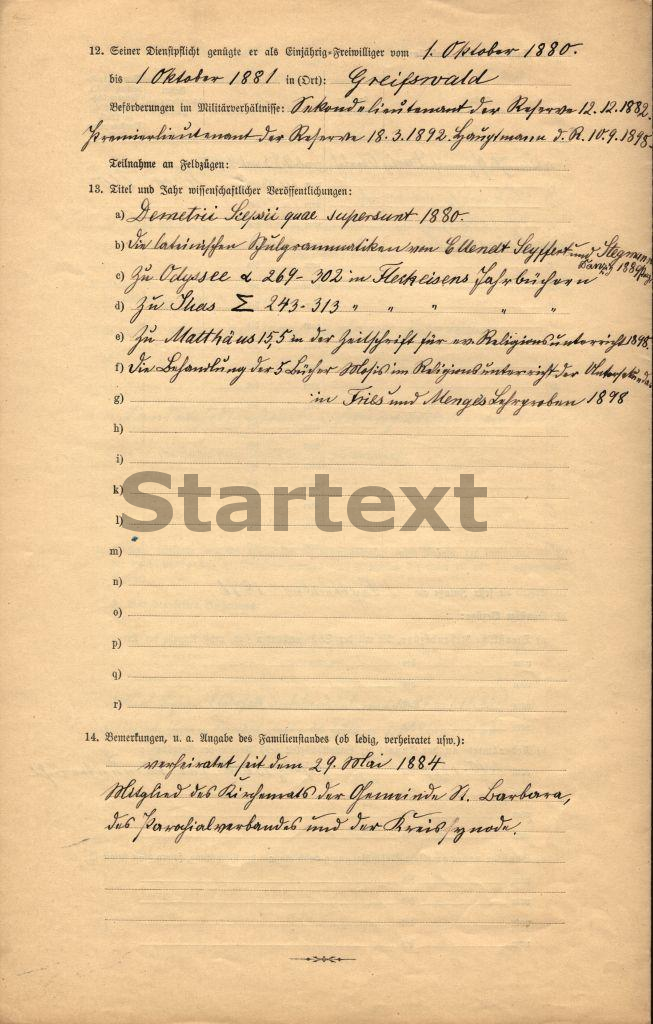 12. Seiner Dienstpflicht genügte er als Einjährig-Freiwilliger vom 1. Oktober 1880.
bis 1 Oktober 1881 in (Ort): Greifswald
Beförderungen im Militärverhältnisse: Sekondelieutenant der Reserve 12.12.1882.
Premierlieutenant der Reserve 18.3.1892. Hauptmann d. R. 10.9.1898.
Teilnahme an Feldzügen:
13. Titel und Jahr wissenschaftlicher Veröffentlichungen:
a) Demetrii Scepsii quae supersunt 1880.
b) Die lateinischen Schulgrammatiken von Ellendt Seyffert und Stegmann
Danzig 1889
c) Zu Odyssee α 269-302 in Fleckeisens Jahrbüchern
d) Zu Ilias Σ 243-313 " " " " "
e) Zu Matthäus 15,5 in der Zeitschrift für ev. Religionsunterricht 1898.
f) Die Behandlung der 5 Bücher Mosis im Religionsunterricht der Untersekunda
g) in Fries und Menges Lehrproben 1898
h)
i)
k)
Startext
l)
m)
n)
o)
p)
q)
r)
14. Bemerkungen, u. a. Angabe des Familienstandes (ob ledig, verheiratet usw.):
verheiratet seit dem 29. Mai 1884
Mitglied des Kirchenrats der Gemeinde St. Barbara,
des Parochialverbandes und der Kreissynode.